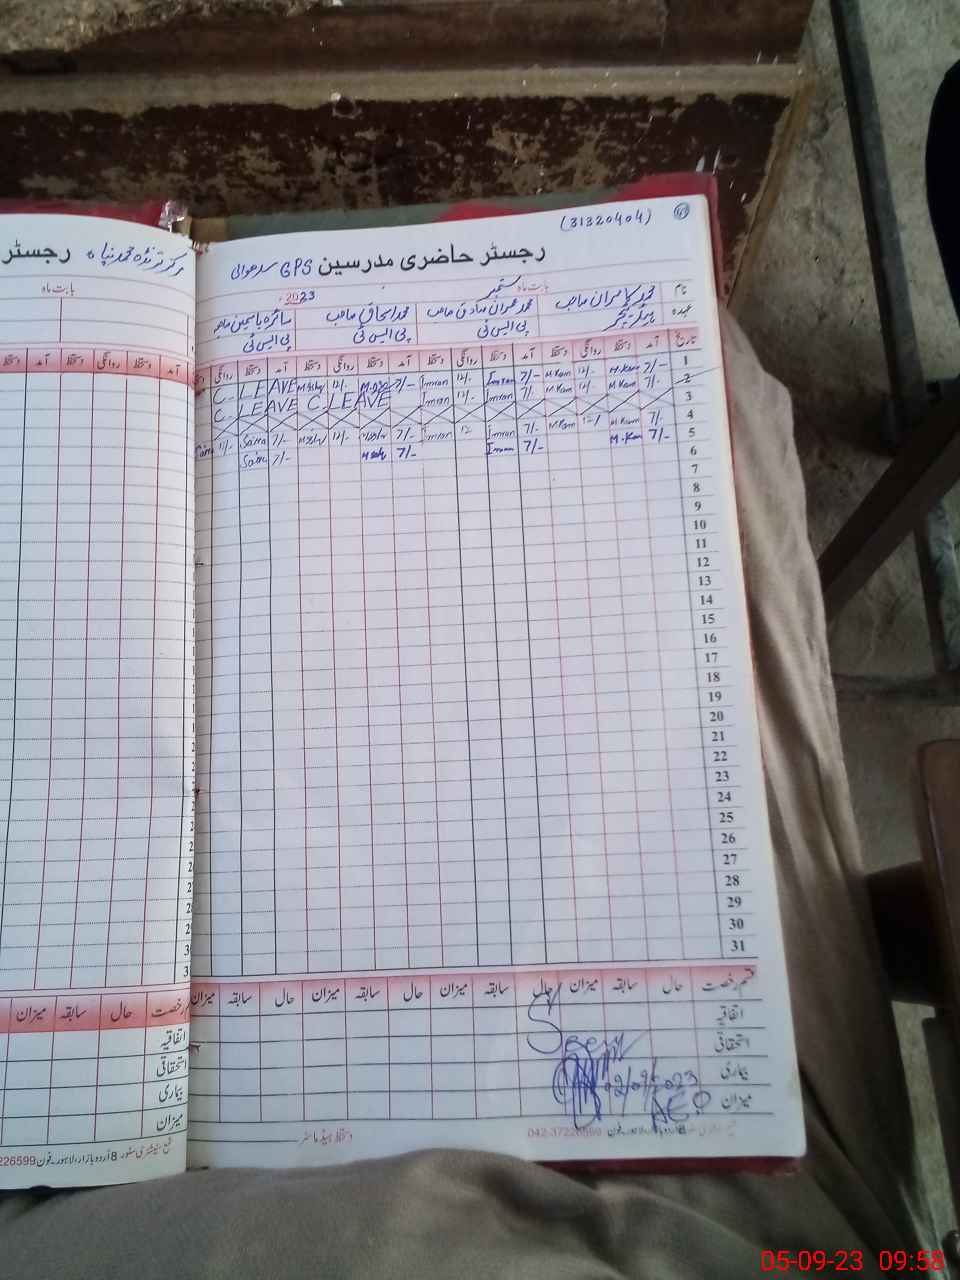 (31320404)
رجسٹر حاضری مدرسین GPS سدھوالی
رجسٹر
بابت ماہ ستمبر 2023
بابت ماہ
نام محمد کامران صاحب محمد عمران صادق صاحب محمد اسحاق صاحب سائرہ یاسمین صاحبہ
عہدہ ہیڈ ٹیچر پی ایس ٹی پی ایس ٹی پی ایس ٹی
تاریخ آمد دستخط روانگی دستخط آمد دستخط روانگی دستخط آمد دستخط روانگی دستخط آمد دستخط روانگی
آمد دستخط روانگی دستخط آمد دستخط
1 7/- M.Kam 12/- M.Kam 7/- Imran 12/- Imran 7/- 12/- C. LEAVE
2 7/- M.Kam 12/- M.Kam 7/- Imran 12/- Imran C. LEAVE C. LEAVE
3
4 7/- M.Kam 12/- M.Kam 7/- Imran 12 Imran 7/- 12/- 7/- Saira 11/-
5 7/- M.Kam 7/- Imran 7/- 7/- Saira
6
7
8
9
10
11
12
13
14
15
16
17
18
19
20
21
22
23
24
25
26
27
28
29
30
31
قسم رخصت حال سابقہ میزان حال سابقہ میزان حال سابقہ میزان حال سابقہ میزان
رخصت حال سابقہ میزان
اتفاقیہ
استحقاقی
بیماری
میزان
اتفاقیہ
استحقاقی
بیماری
میزان
Seen
02/09/2023
AEO
دستخط ہیڈ ماسٹر
8 اردو بازار، لاہور۔ فون 042-37226599
8 اردو بازار، لاہور۔ فون 226599
05-09-23 09:58